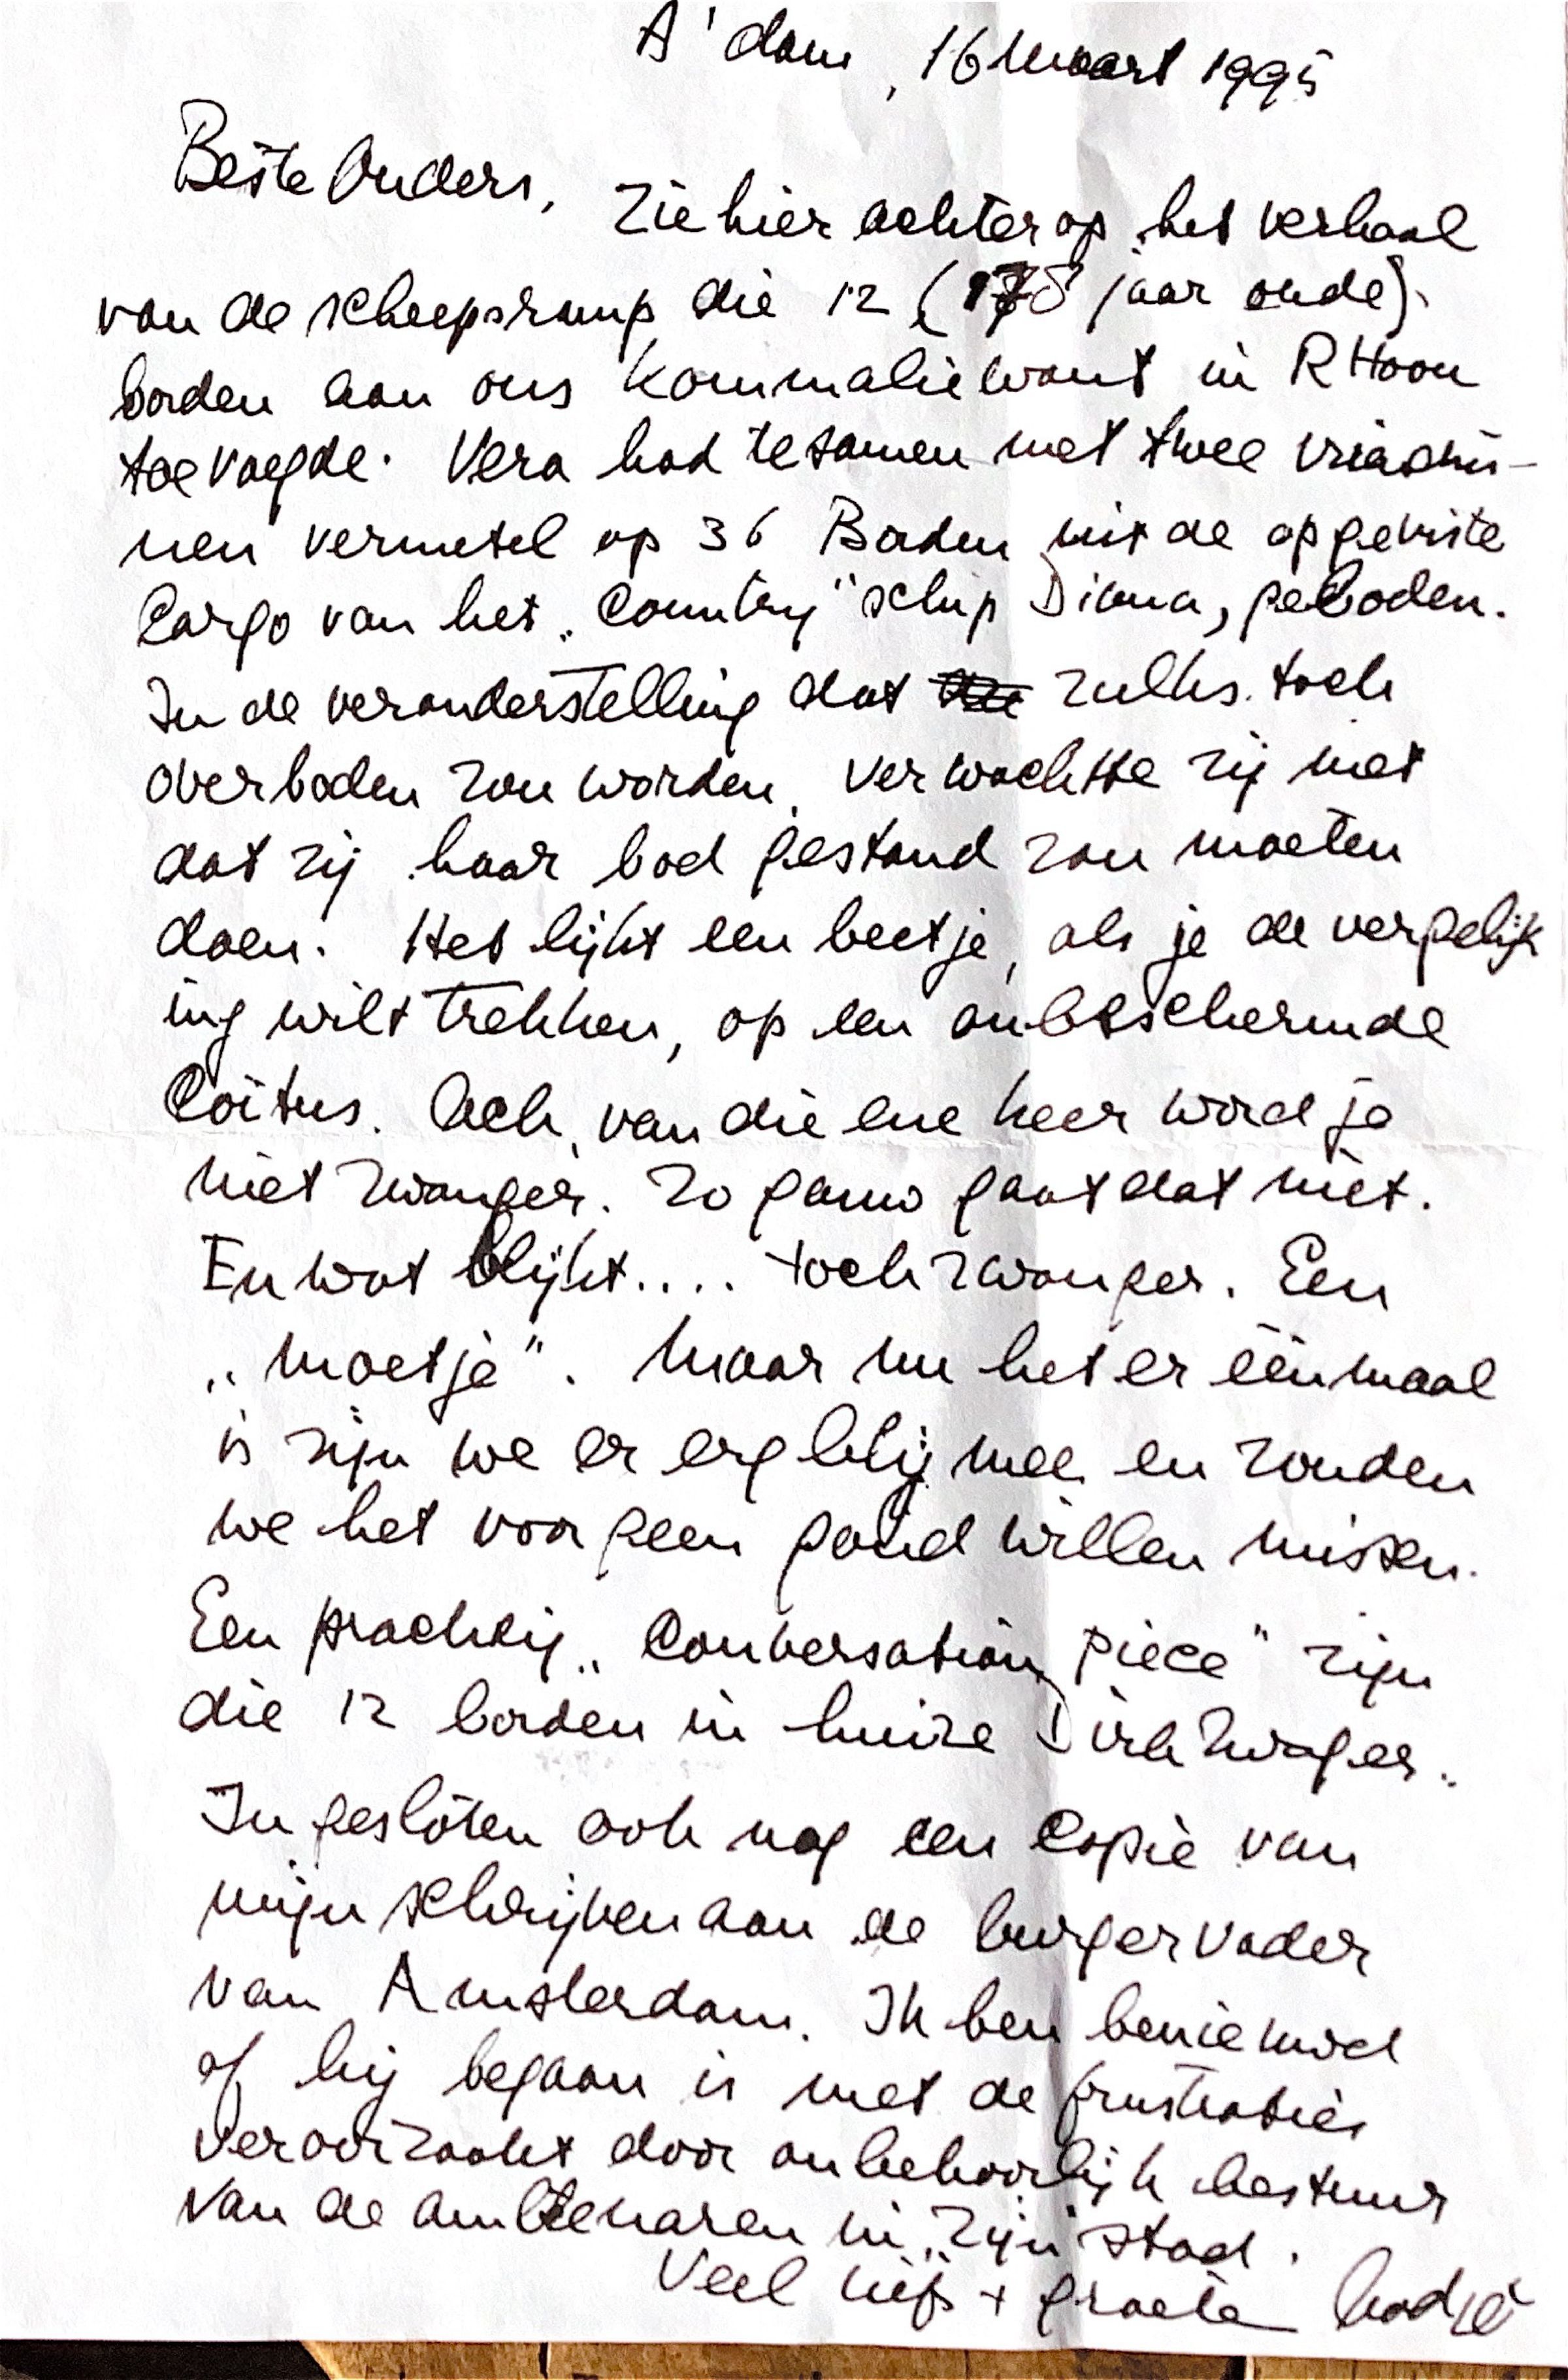 A'dam, 16 Maart 1995
Beste Ouders,
Zie hier achterop het verhaal
van de scheepsramp die 12 (178 jaar oude)
borden aan ons kommaliewant in RHoon
toevoegde. Vera had tesamen met twee vriendin-
nen vermetel op 36 Borden uit de opgeviste
Cargo van het „Country" schip Diana, geboden.
In de veronderstelling dat zulks toch
overboden zou worden, verwachtte zij niet
dat zij haar bod gestand zou moeten
doen. Het lijkt een beetje, als je de vergelijk
ing wilt trekken, op een onbeschermde
Coïtus. Ach, van die ene keer word je
niet zwanger. Zo gauw gaat dat niet.
En wat blijkt.... toch zwanger. Een
„moetje". Maar nu het er éénmaal
is zijn we er erg blij mee en zouden
we het voor geen goud willen missen.
Een prachtig „Conversation piece" zijn
die 12 borden in huize Dirkzwager.
Ingesloten ook nog een Copie van
mijn schrijven aan de burgervader
van Amsterdam. Ik ben benieuwd
of hij begaan is met de frustraties
veroorzaakt door onbehoorlijk bestuur
van de ambtenaren in „zijn" stad.
Veel liefs + groete